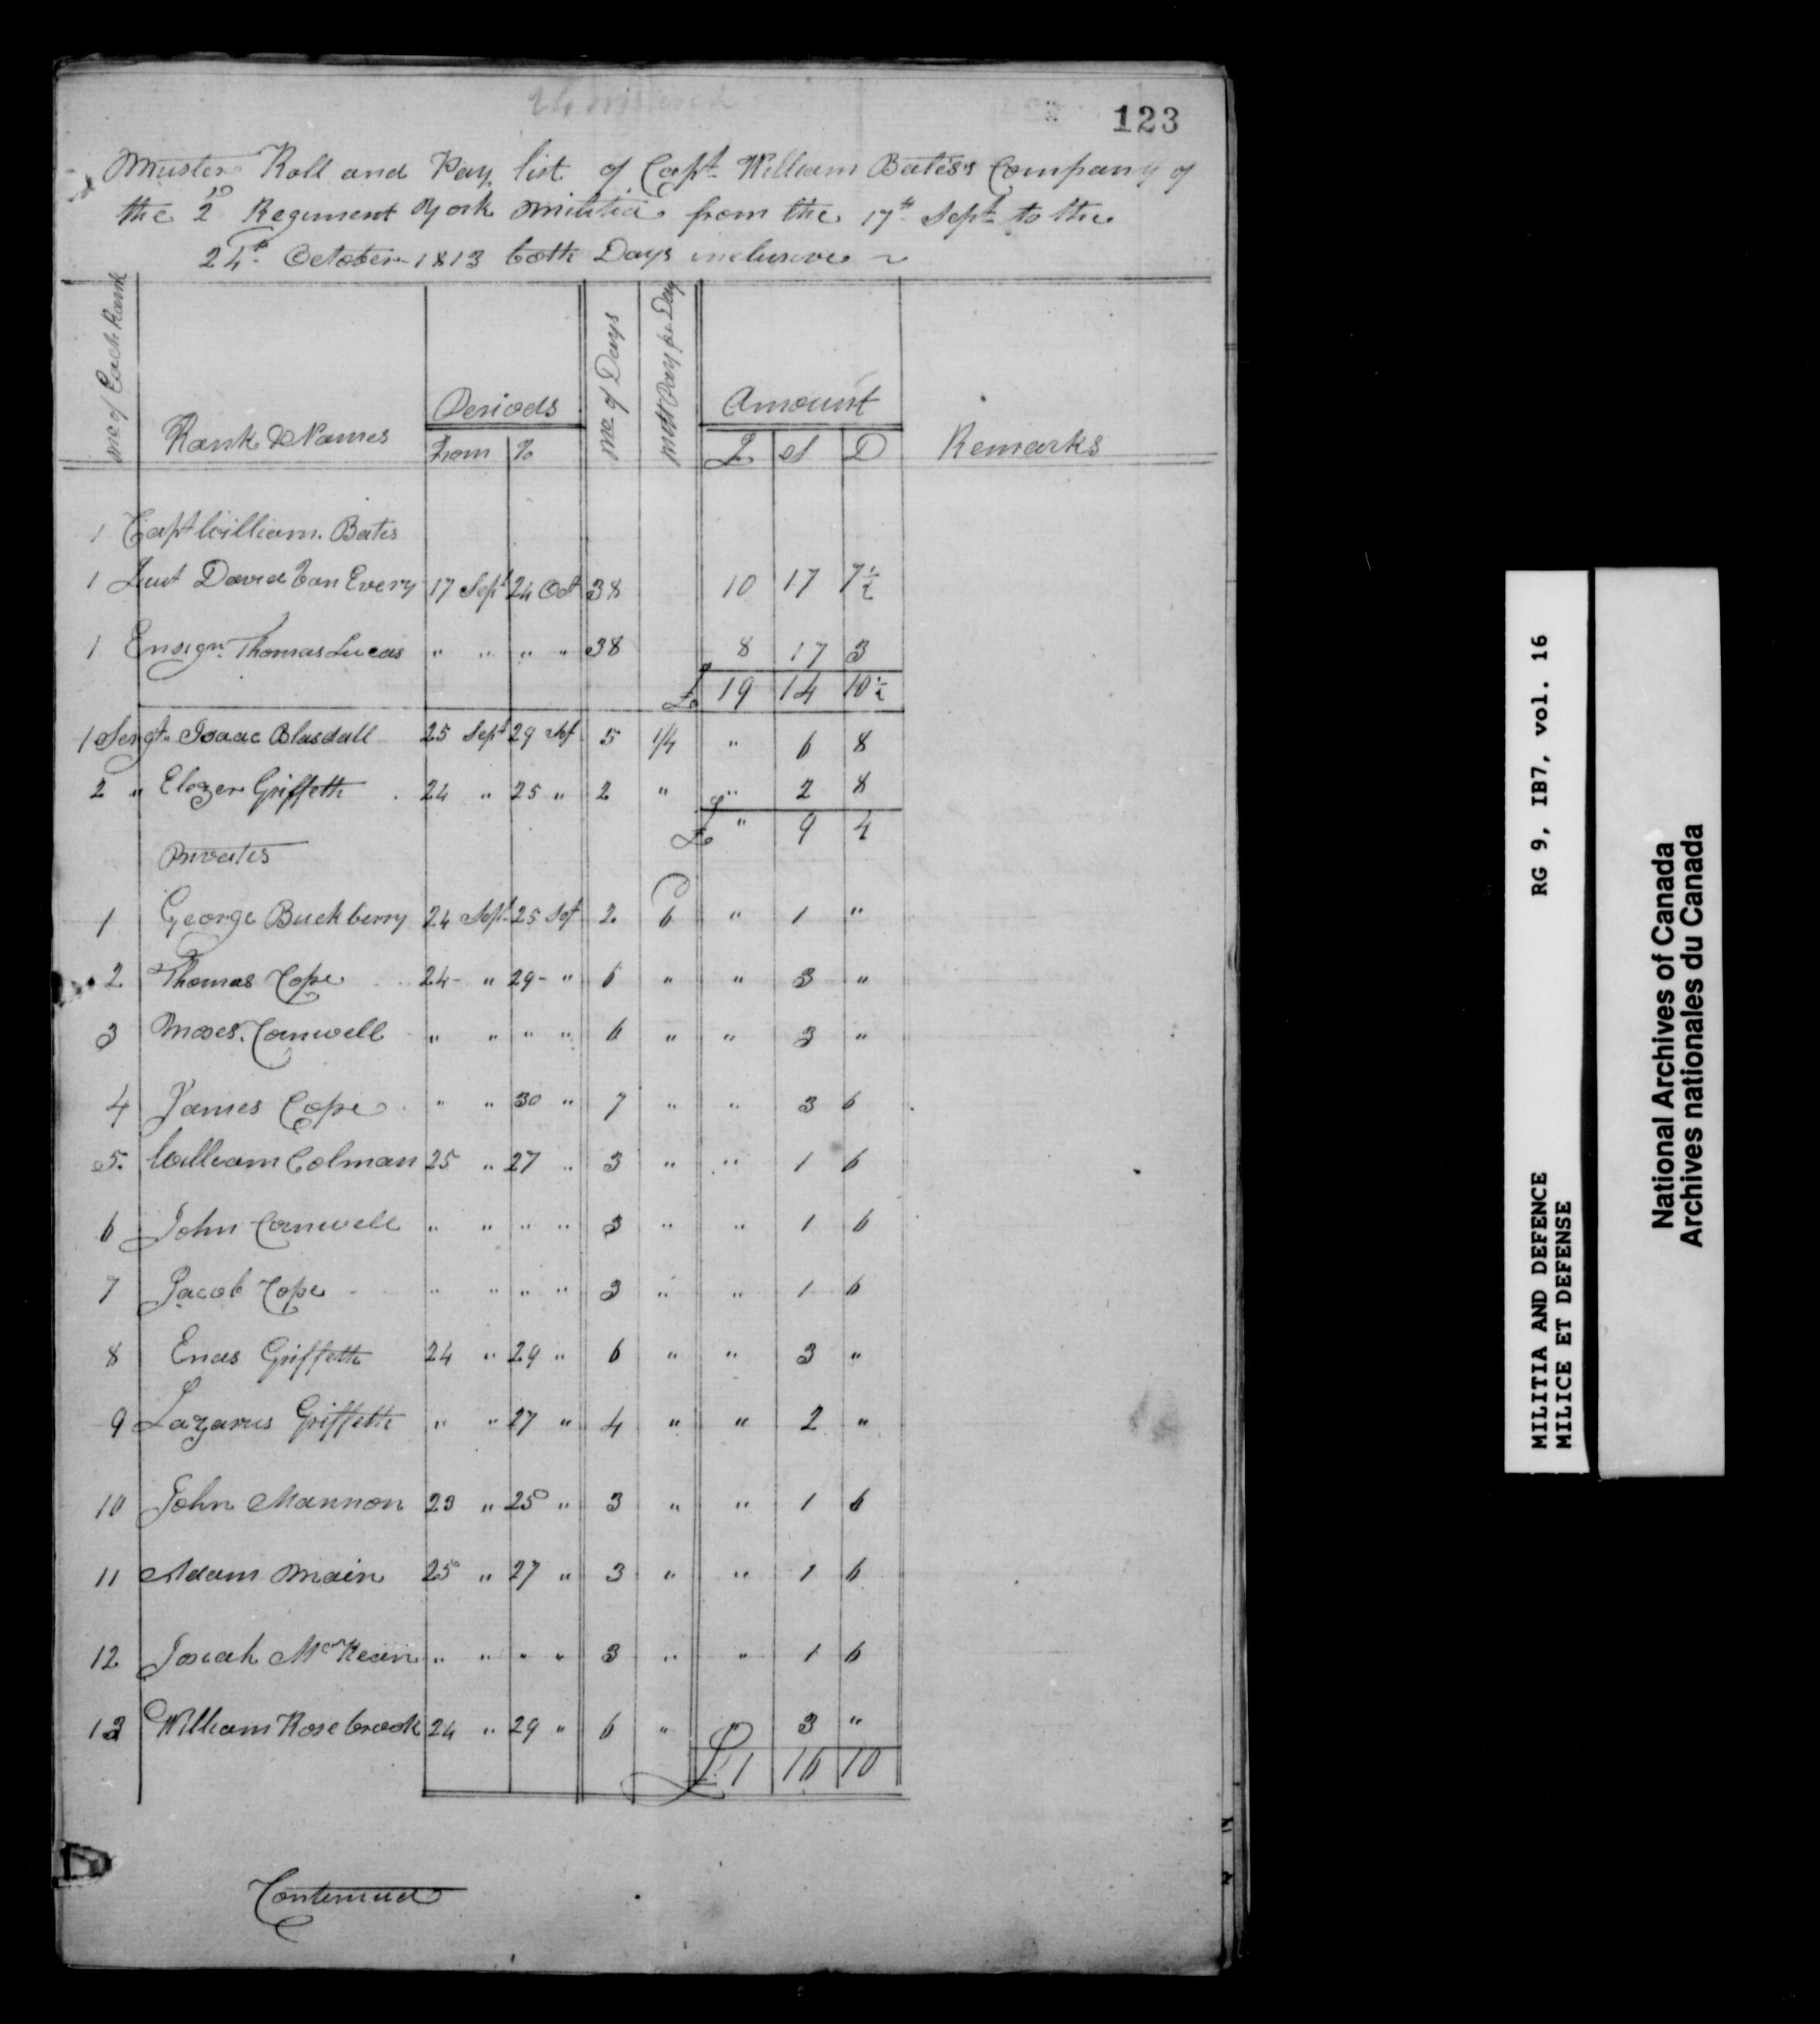 123
Muster Roll and Pay list of Capt William Bates's Company of
the 2 Regiment York Militia from the 17th Sept to the
24th October 1813 both Days inclusive ~
No of Each Rank
Rank & Names
Periods
From To
No of Days
Pay pr Day
Amount
£ S D
Remarks
1 Capt William Bates
1 Lieut David Van Every 17 Sept 24 Oct 38 10 17 7½
1 Ensign Thomas Lucas " " " " 38 8 17 3
£ 19 14 10½
1 Sergt Isaac Blasdall 25 Sept 29 Sep 5 1/4 " 6 8
2 " Elozer Griffeth 24 " 25 " 2 " " 2 8
£ " 9 4
Privates
1 George Buckberry 24 Sept 25 Sep 2 6 " 1 "
2 Thomas Cope 24 - " 29 - " 6 " " 3 "
3 Moses Cornwell " " " " 6 " " 3 "
4 James Cope " " 30 " 7 " " 3 6
5 William Colman 25 " 27 " 3 " " 1 6
6 John Cornwell " " " " 3 " " 1 6
7 Jacob Cope " " " " 3 " " 1 6
8 Enas Griffeth 24 " 29 " 6 " " 3 "
9 Lazarus Griffeth " " 27 " 4 " " 2 "
10 John Mannon 23 " 25 " 3 " " 1 6
11 Adam Main 25 " 27 " 3 " " 1 6
12 Josiah McKean " " " " 3 " " 1 6
13 William Rosebrook 24 " 29 " 6 " " 3 "
£ 1 16 10
Continued
MILITIA AND DEFENCE RG 9, IB7, vol. 16
MILICE ET DEFENSE
National Archives of Canada
Archives nationales du Canada